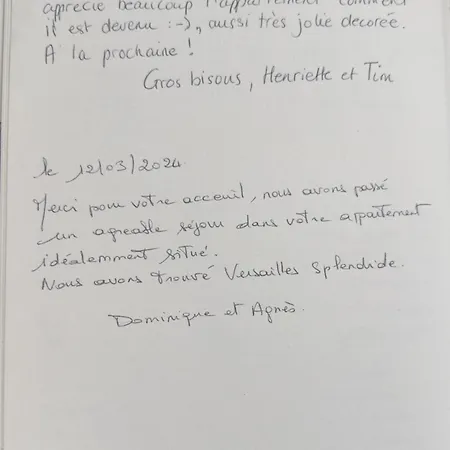 apprécié beaucoup l'appartement comment
il est devenu :-), aussi très jolie decorée.
A la prochaine !
Gros bisous, Henriette et Tim
le 12/03/2024
Merci pour votre acceuil, nous avons passé
un agreable séjour dans votre appartement
idéalemment situé.
Nous avons trouvé Versailles splendide.
Dominique et Agnès.